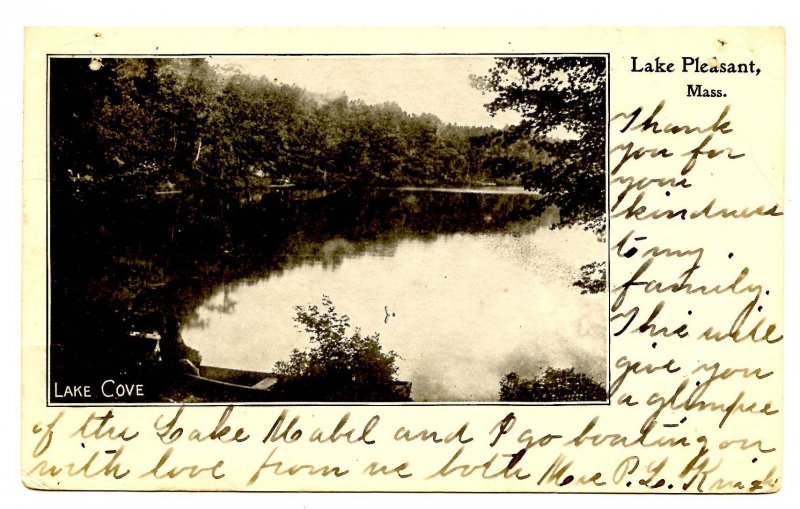 Lake Pleasant,
Mass.
Thank
you for
your
kindness
to my
family.
This will
give you
a glimpse
of the Lake Mabel and I go boating on
with love from we both Mrs P. L. Knight
LAKE COVE